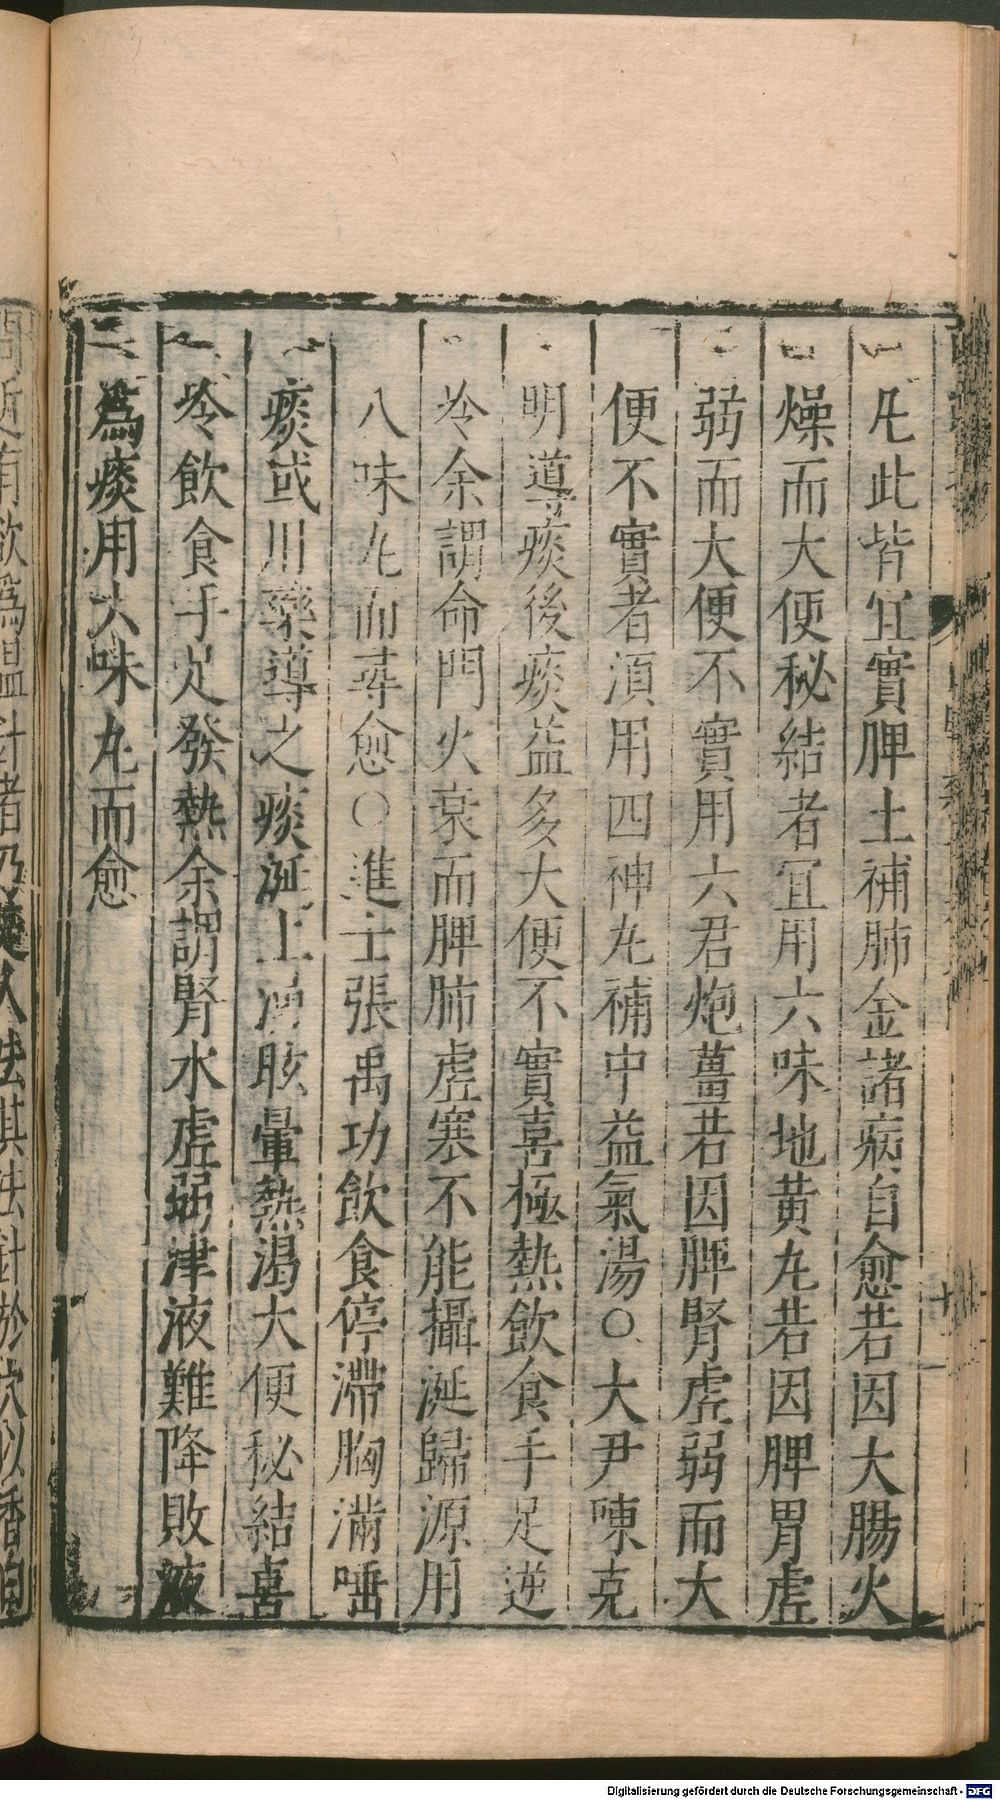 凡此皆宜實脾土補肺金諸病自愈若因大腸火
燥而大便秘結者宜用六味地黃丸若因脾胃虛
弱而大便不實用六君炮薑若因脾腎虛弱而大
便不實者須用四神丸補中益氣湯○大尹陳克
明導痰後痰益多大便不實喜極熱飲食手足逆
冷余謂命門火衰而脾肺虛寒不能攝涎歸源用
八味丸而尋愈○進士張禹功飲食停滯胸滿唾
痰或用藥導之痰涎上湧眩暈熱渴大便秘結喜
冷飲食手足發熱余謂腎水虛弱津液難降敗液
為痰用六味丸而愈
十一
Digitalisierung gefördert durch die Deutsche Forschungsgemeinschaft - DFG